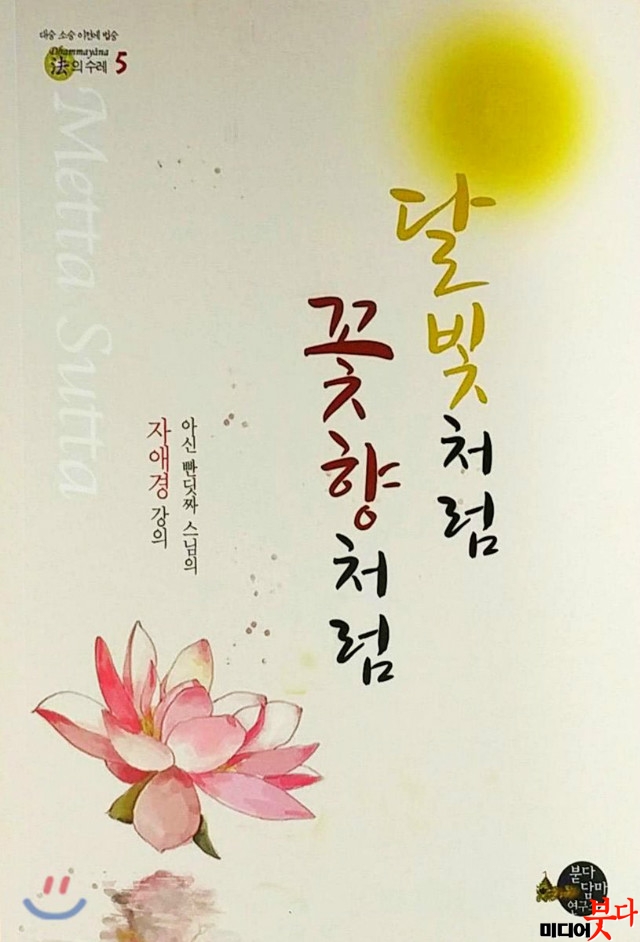 대승 소승 이전에 법승
Dhammayāna
法의 수레 5
Metta Sutta
달빛처럼
꽃향처럼
아신 빤딧짜 스님의
자애경 강의
붇다
담마
연구
미디어붓다